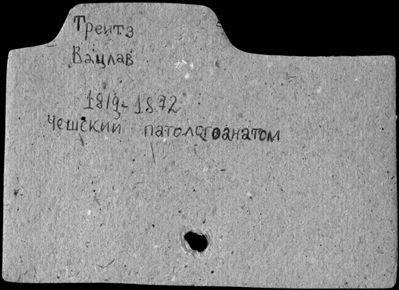 Треитз
Вацлав
1819-1872
Чешский патологоанатом